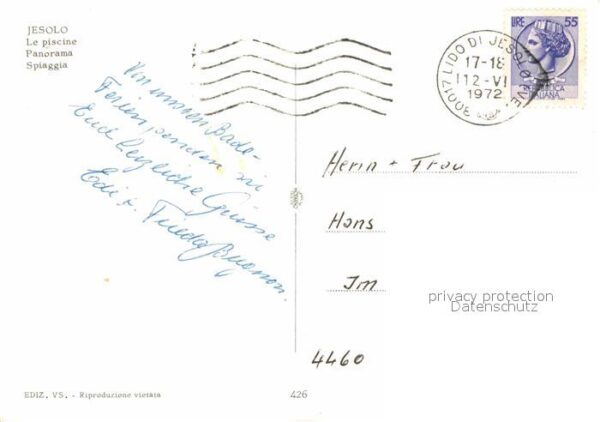 JESOLO
Le piscine
Panorama
Spiaggia
LIRE 55
30017 LIDO DI JESOLO (VE)
17-18
12-VI
1972
ITALIANA
Von unseren Bade-
Ferien senden wir
Euch herzliche Grüsse
Edi u. Frieda
Herrn + Frau
Hans
Im
privacy protection
Datenschutz
4460
EDIZ. VS. - Riproduzione vietata
426